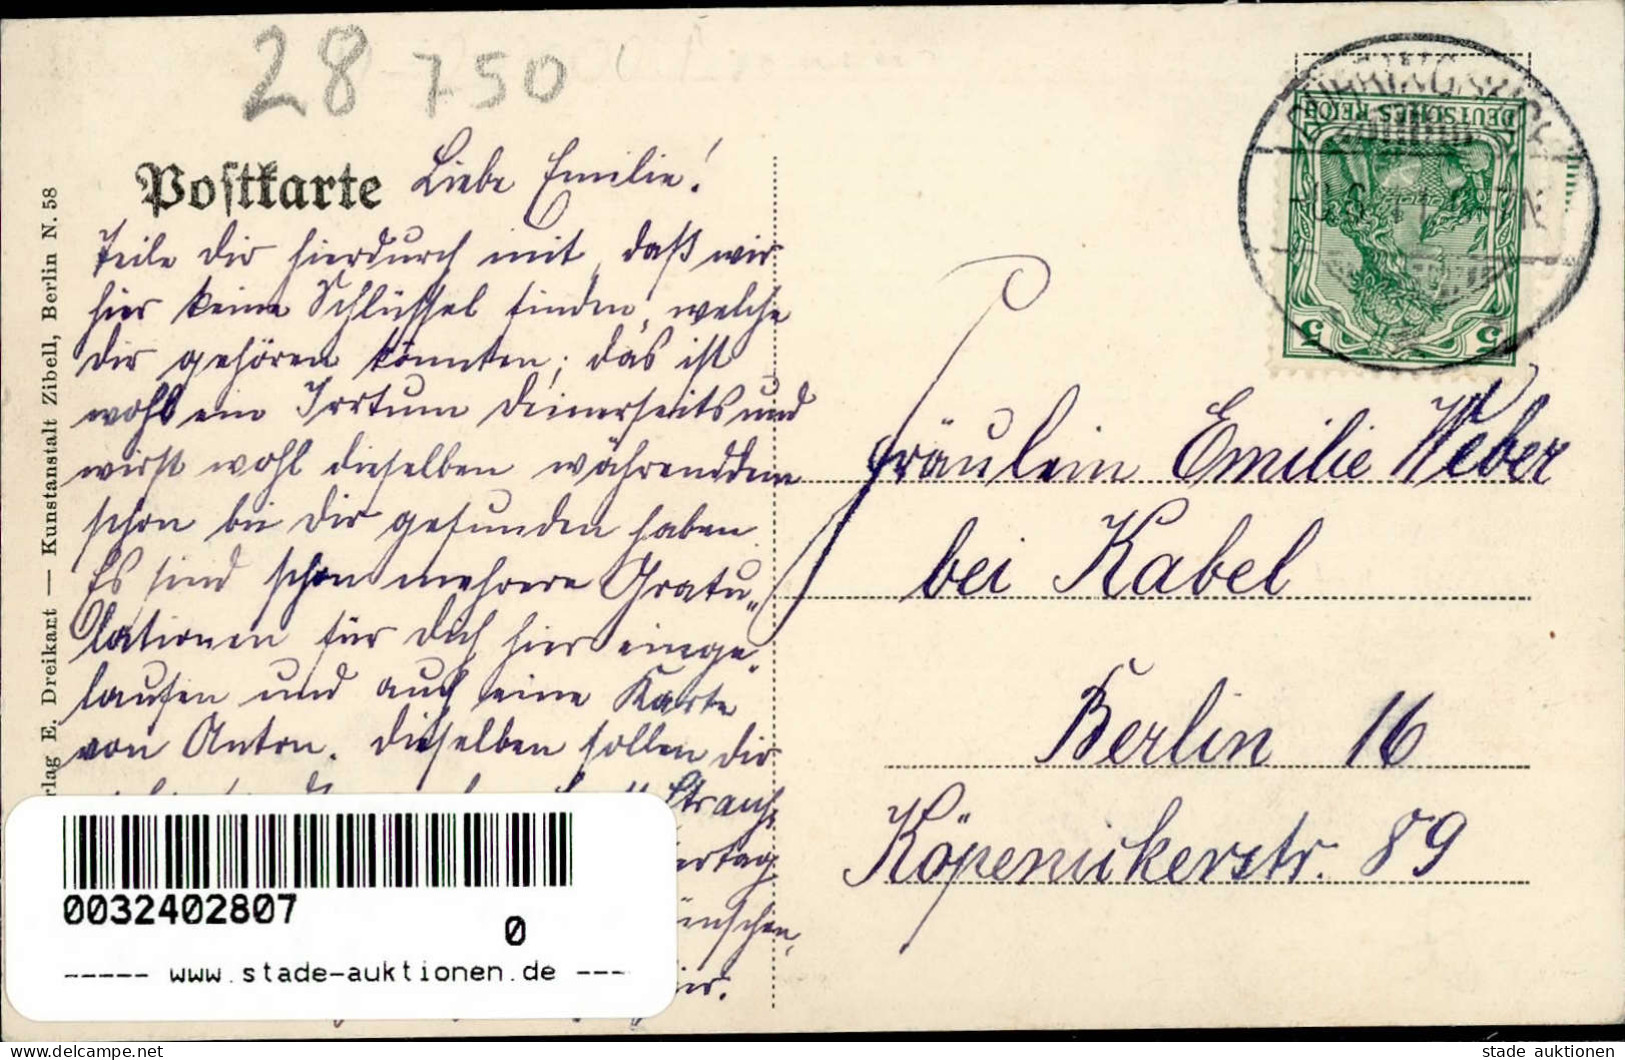 28 750
Postkarte Liebe Emilie!
Teile dir hierdurch mit, daß wir
hier keine Schlüssel finden, welche
dir gehören könnten; das ist
wohl ein Irrtum deinerseits und
wirst wohl dieselben währenddem
schon bei dir gefunden haben.
Es sind schon mehrere Gratu„
lationen für dich hier einge„
laufen und auch eine Karte
von Anton. Dieselben sollen dir
Strauß
ertag
ünschen,
ier.
rlag E. Dreikant — Kunstanstalt Zibell, Berlin N. 58
DEUTSCHES REICH
5 5
Fräulein Emilie Weber
bei Kabel
Berlin 16
Köpenickerstr. 89
0032402807
0
----- www.stade-auktionen.de ----
stade auktionen